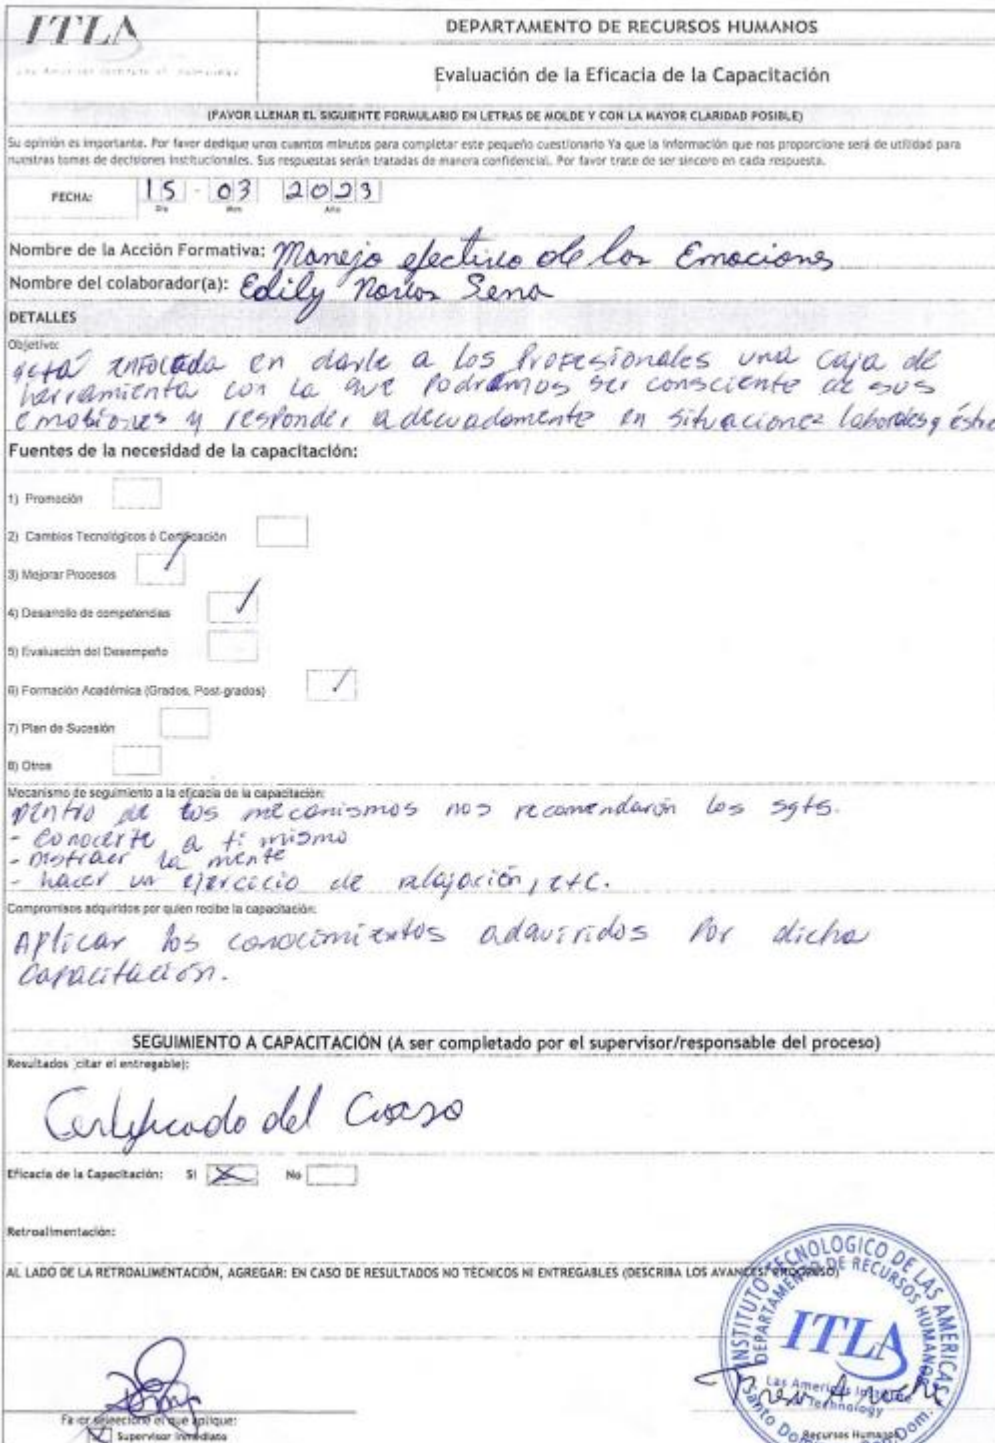 ITLA
DEPARTAMENTO DE RECURSOS HUMANOS
Las Americas Institute of Technology
Evaluación de la Eficacia de la Capacitación
(FAVOR LLENAR EL SIGUIENTE FORMULARIO EN LETRAS DE MOLDE Y CON LA MAYOR CLARIDAD POSIBLE)
Su opinión es importante. Por favor dedique unos cuantos minutos para completar este pequeño cuestionario Ya que la información que nos proporcione será de utilidad para
nuestras tomas de decisiones institucionales. Sus respuestas serán tratadas de manera confidencial. Por favor trate de ser sincero en cada respuesta.
FECHA: 15 - 03 2023
Día Mes Año
Nombre de la Acción Formativa: Manejo efectivo de las Emociones
Nombre del colaborador(a): Edily Sena
DETALLES
Objetivo:
está enfocada en darle a los Profesionales una caja de
herramienta con la que Podramos ser consciente de sus
emociones y responder adecuadamente en situaciones laborales y estre
Fuentes de la necesidad de la capacitación:
1) Promoción
2) Cambios Tecnológicos ó Certificación
3) Mejorar Procesos
4) Desarrollo de competencias
5) Evaluación del Desempeño
6) Formación Académica (Grados, Post-grados)
7) Plan de Sucesión
8) Otros
Mecanismo de seguimiento a la eficacia de la capacitación:
Dentro de los mecanismos nos recomendarón los sgts.
- Conocerte a ti mismo
- Distraer la mente
- hacer un ejercicio de relajación, etc.
Compromisos adquiridos por quien recibe la capacitación:
Aplicar los conocimientos adquiridos Por dicha
Capacitación.
SEGUIMIENTO A CAPACITACIÓN (A ser completado por el supervisor/responsable del proceso)
Resultados (citar el entregable):
Certificado del Curso
Eficacia de la Capacitación: SI X No
Retroalimentación:
AL LADO DE LA RETROALIMENTACIÓN, AGREGAR: EN CASO DE RESULTADOS NO TÉCNICOS NI ENTREGABLES (DESCRIBA LOS AVANCES/ PROGRESO)
INSTITUTO TECNOLOGICO DE LAS AMERICAS
DEPARTAMENTO DE RECURSOS HUMANOS
ITLA
Las Americas Institute
of Technology
Santo Domingo, Rep. Dom.
Favor seleccione el que aplique:
Supervisor Inmediato
Recursos Humanos